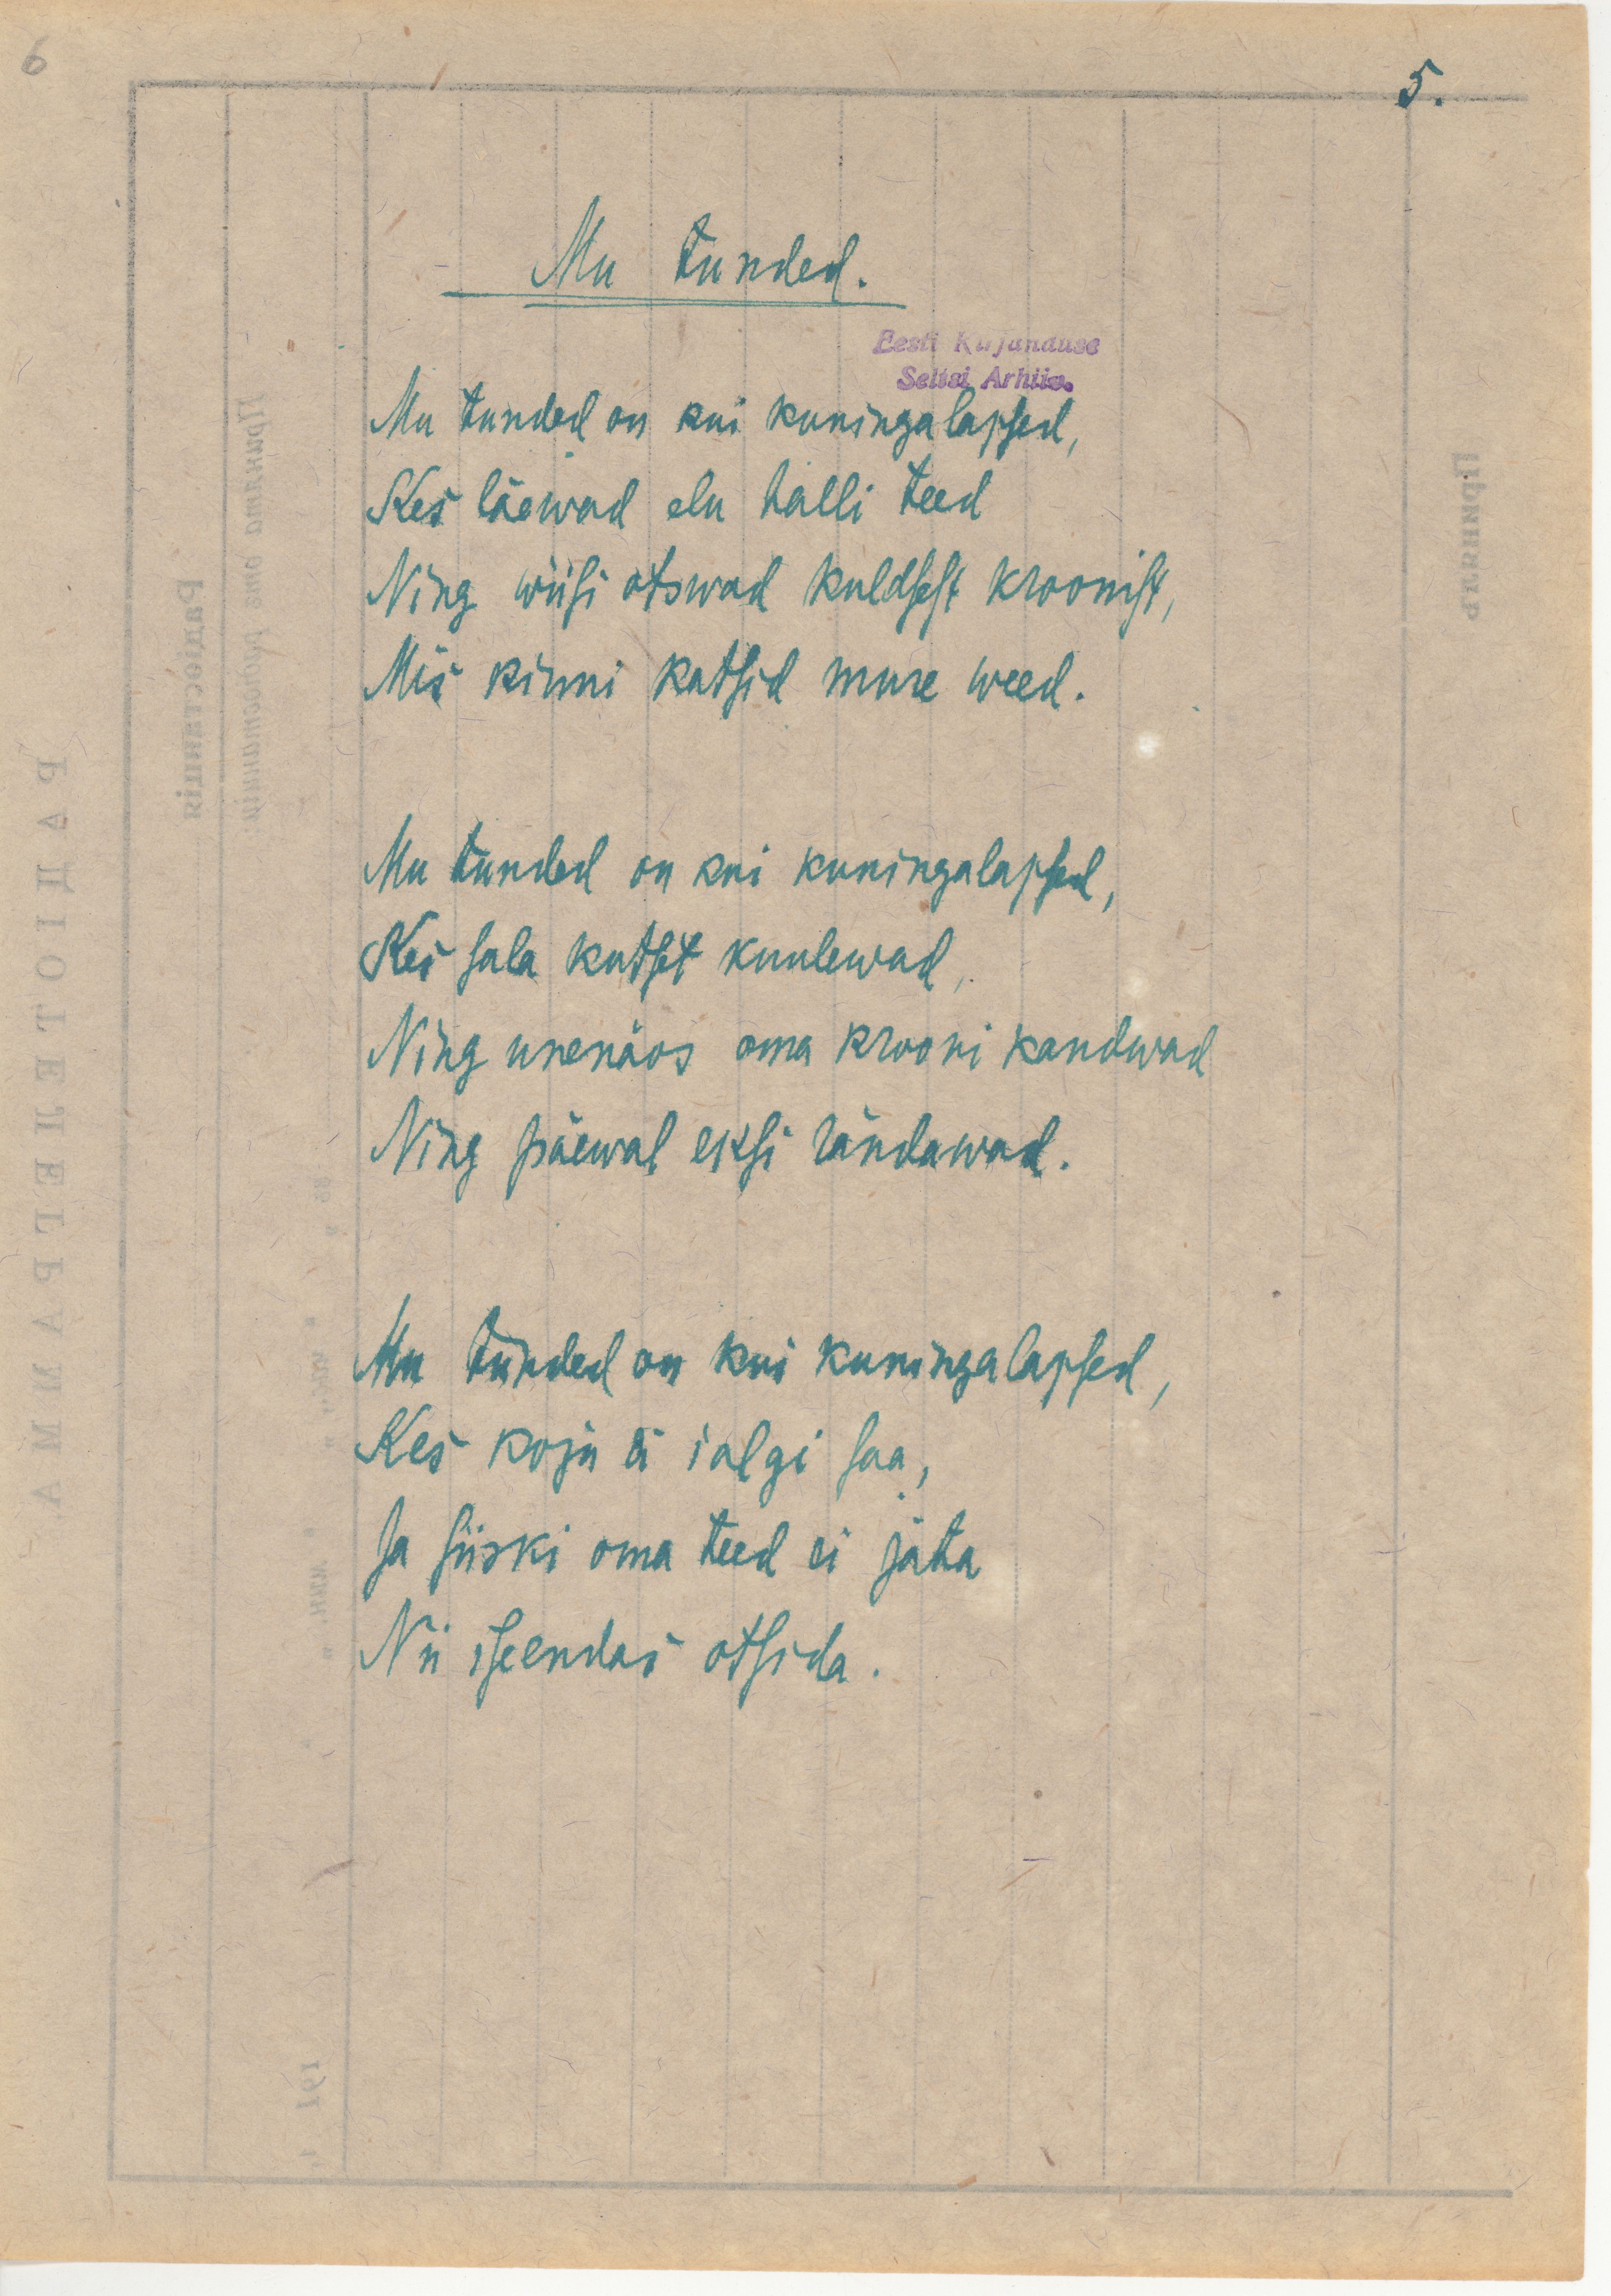 6
5.
Mu tunded.
Eesti Kirjanduse
Seltsi Arhiiv.
Mu tunded on kui kuningalapsed,
Kes läewad elu halli teed
Ning wiisi otswad kuldsest kroonist,
Mis kinni katsid mure weed.
Mu tunded on kui kuningalapsed,
Kes sala kutset kuulewad,
Ning unenäos oma krooni kandwad
Ning päewal eksi rändawad.
Mu tunded on kui kuningalapsed,
Kes koju ei ialgi saa,
Ja siiski oma teed ei jäta
Nii iseendas otsida.
РАДІОТЕЛЕГРАММА
Радіостанція
Принята отъ радіостанціи:
Принялъ
191